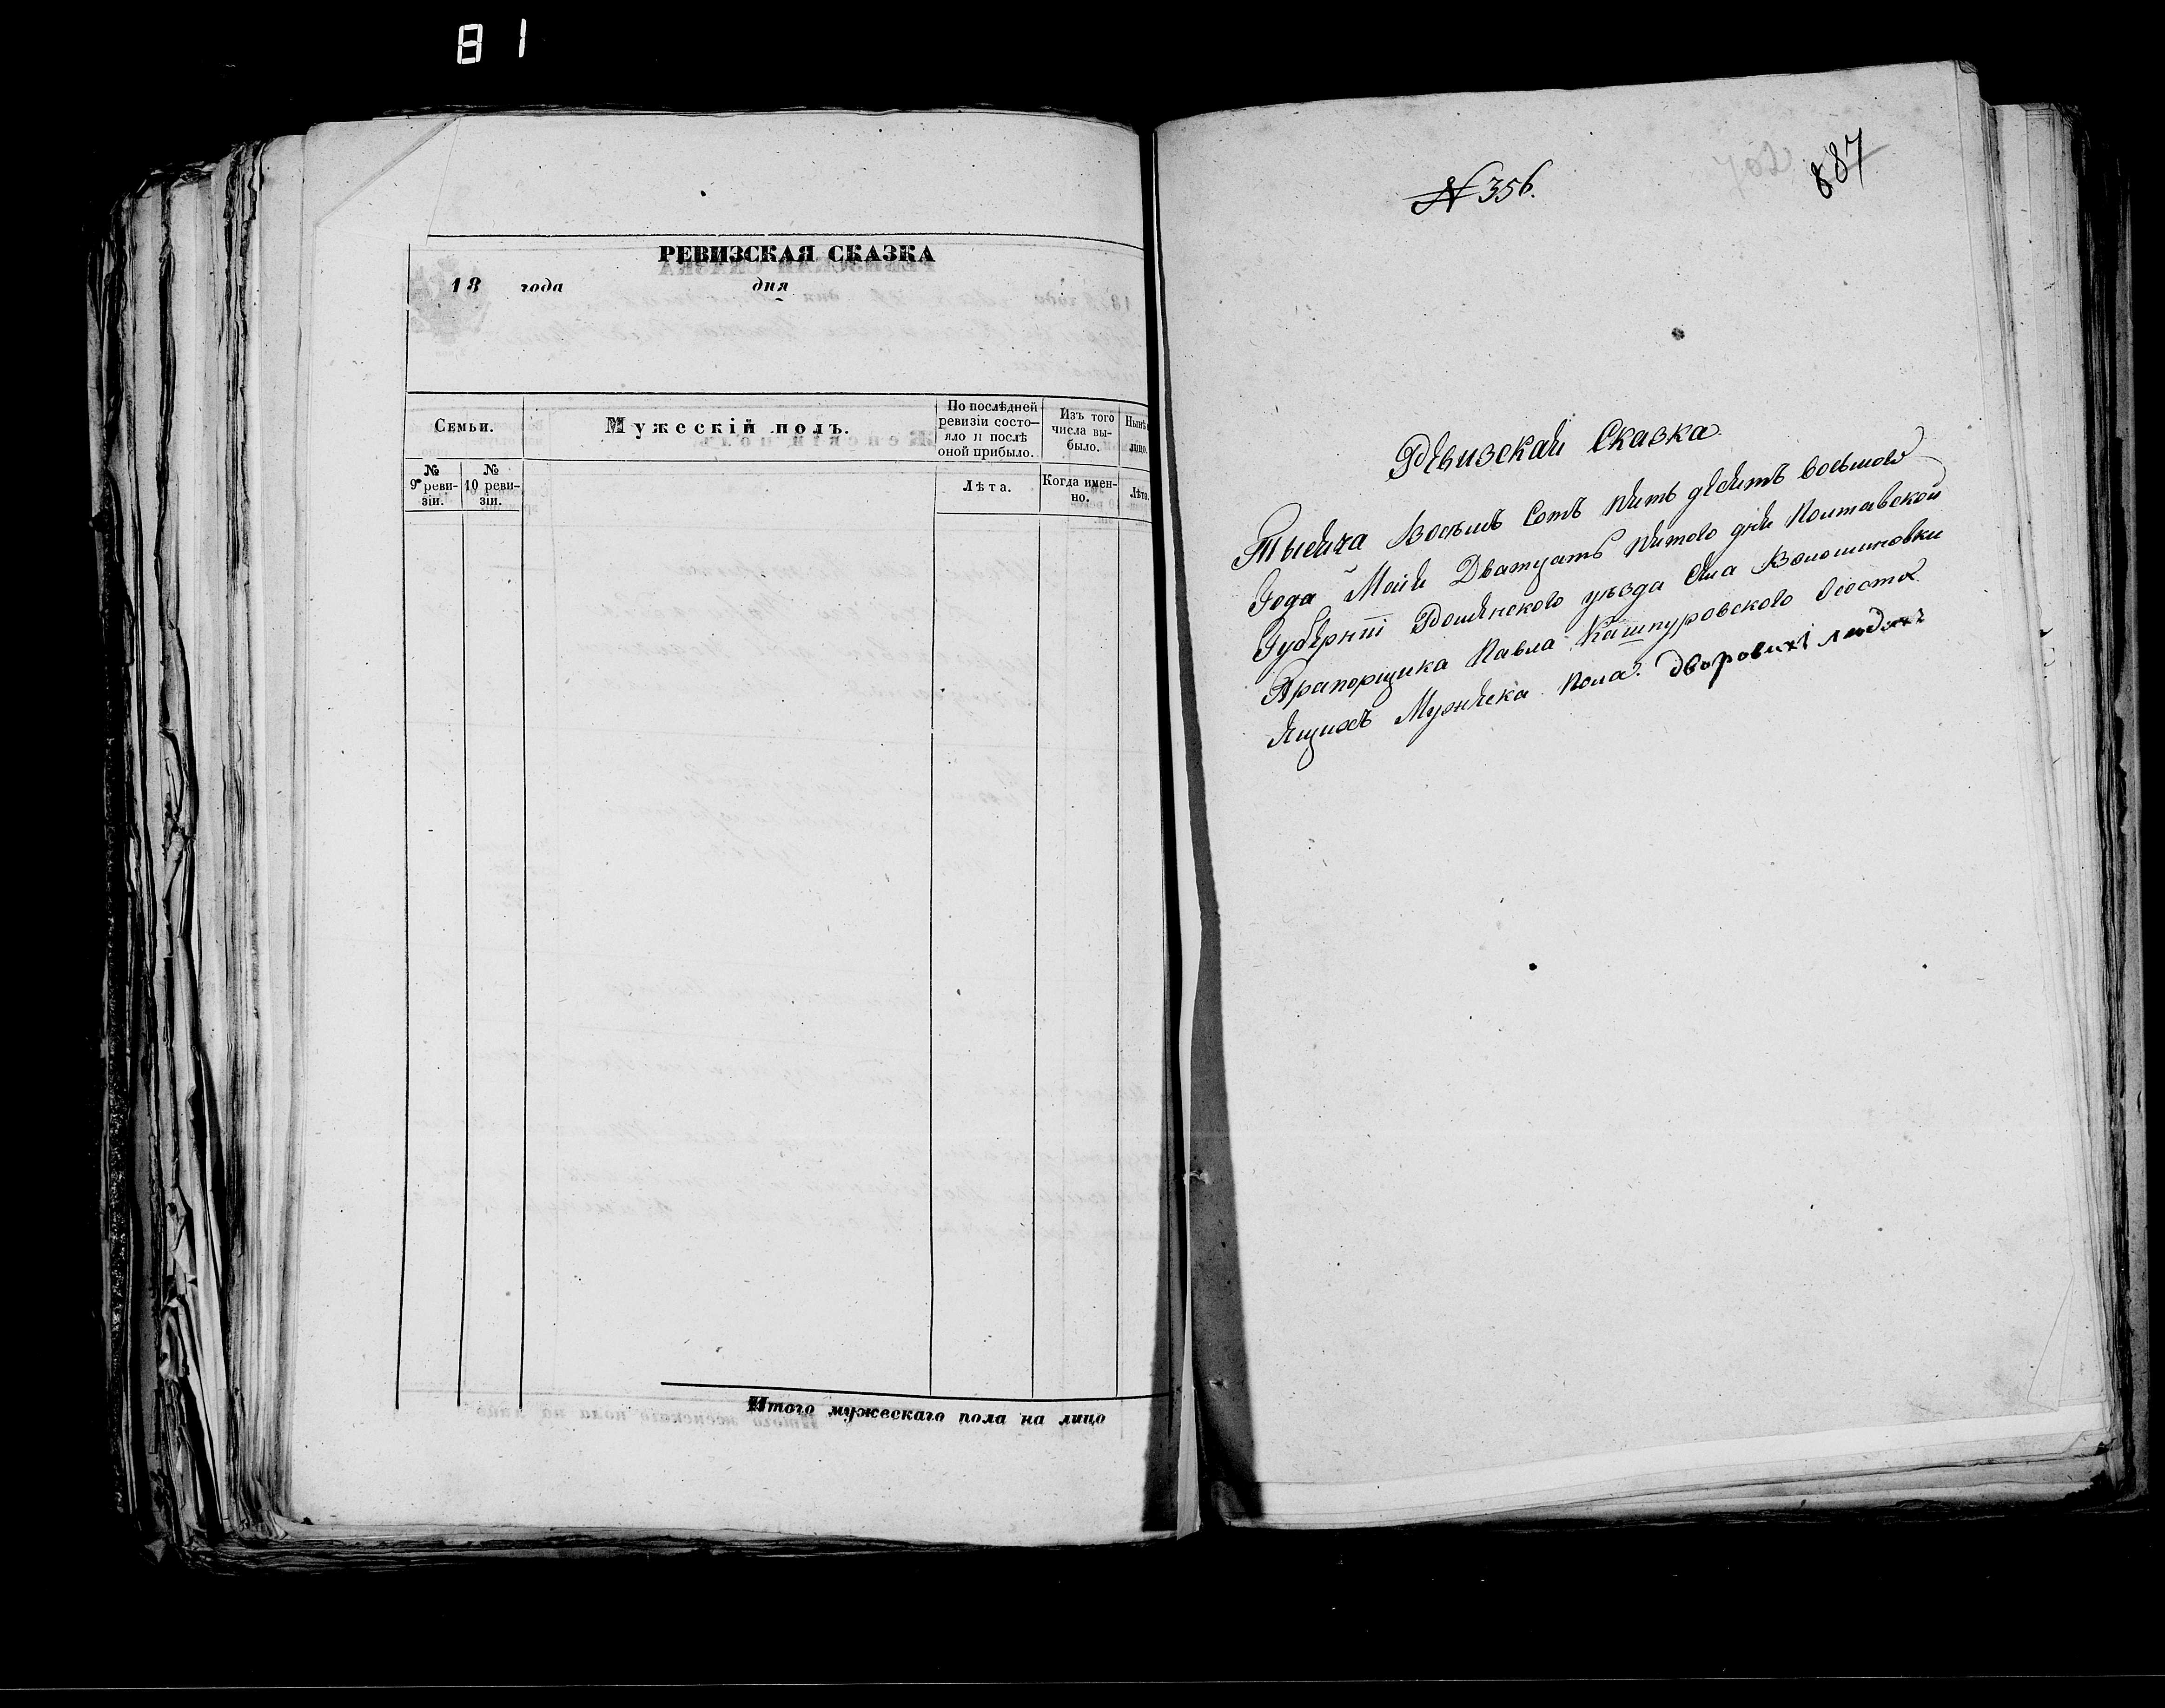 81
РЕВИЗСКАЯ СКАЗКА
18 года дня
Семьи.
Мужескій полъ.
По послѣдней
ревизіи состо-
яло и послѣ
оной прибыло.
Изъ того
числа вы-
было.
Нынѣ
лицо.
№
9 реви-
зіи.
№
10 реви-
зіи.
Лѣта.
Когда имен-
но.
Лѣта.
Итого мужескаго пола на лицо
№ 356.
702
887
Ревизская Сказка
Тысяча Восемь Сотъ пять десятъ восьмого
Года Маія Дватцать пятого дня Полтавской
Губерніи Роменского уѣзда Села Волошиновки
Прапорщика Павла Кашпуровского о состоя
ящихъ Мужеска пола. дворовихъ людях